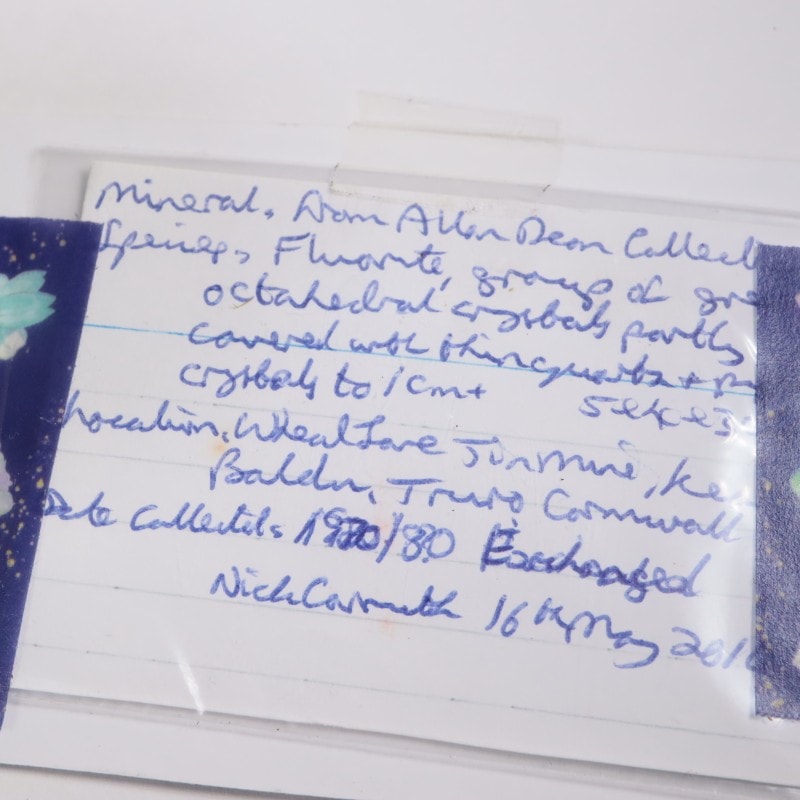 Mineral. From Allan Dean Collect
Species. Fluorite, group of gre
octahedral crystals partly
covered with thin quartz +
crystals to 1cm+
Location. Wheal Jane Tin Mine, Ke
Baldhu, Truro Cornwall
Date Collected. 1970/80 Exchanged
Nick 16th May 201